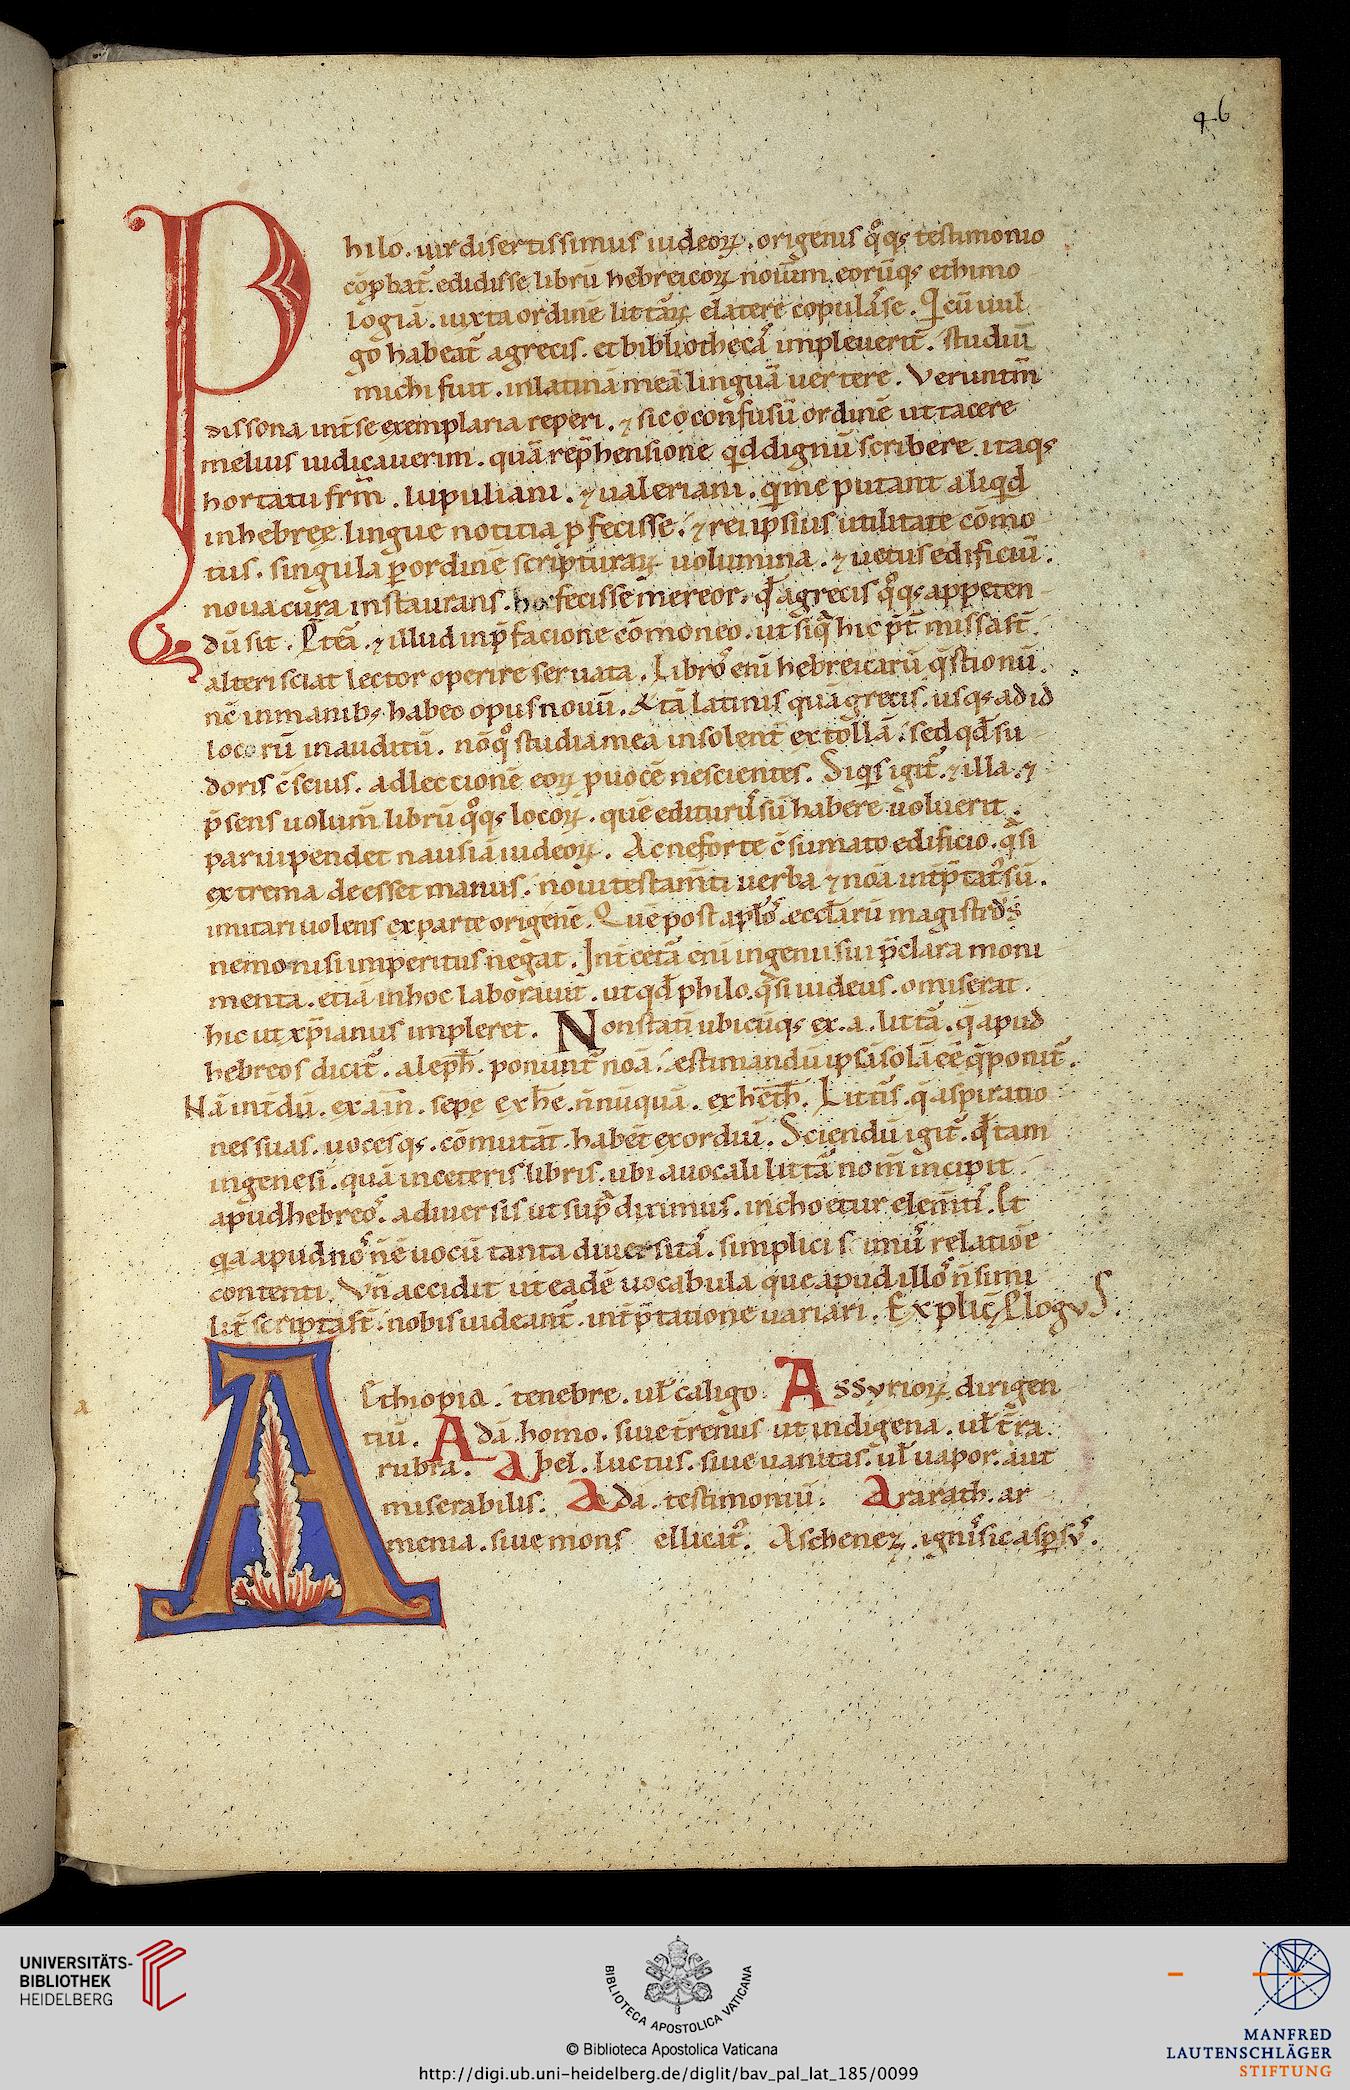 46
Philo . uir disertissimus iudeoꝝ . origenis qͦqꝫ testimonio
cōp̱bat᷑ . edidisse librū hebreicoꝝ noīum . eorūqꝫ ethimo
logiā . iuxta ordinē litt̄aꝝ e latere copulasse . Qi cū uul
go habeat᷑ a grecis . et bibliothecas impleuerit . studiū
michi fuit . in latinā meā linguā uertere . Veruntm̄
dissona int̄ se exemplaria reperi . ⁊ sic ꝯfusū ordinē ut tacere
melius iudicauerim . quā rep̄hensione qd dignū scribere . itaqꝫ
hortatu frm̄ . lupuliani . ⁊ ualeriani . qi me putant aliqd
in hebreę lingue notitia ꝓfecisse . ⁊ rei ipsius utilitate cōmo
tus . singula ꝑ ordinē scripturaꝝ uolumina . ⁊ uetus edificiū .
noua cura instaurans . hoc fecisse me reor . qd̄ a grecis qͦqꝫ appeten
dū sit . Et̄eā . ⁊ illud in p̄facione cōmoneo . ut siqͣ hic p̄t̄missa st̄ .
alteri sciat lector operire seruata . Libros eni hebreicarū q̄stionū .
nc̄ in manibꝫ habeo opus nouū . & tā latinis quā grecis . usqꝫ ad id
locorū inauditū . nō qͦ studia mea insolent̄ extollā . sed qd̄ su
doris ꝯscius . ad leccionē eoꝝ ꝓuocē nescientes . Siqͥs igit᷑ . ⁊ illa . ⁊
p̄sens uolum̄ librū qͦqꝫ locoꝝ . quē editurus sū habere uoluerit .
paruipendet nausiā iudeoꝝ . Ac ne forte ꝯsumato edificio . qͣsi
extrema deesset manus . noui testam̄ti uerba ⁊ noīa int̄p̄tatus sū .
imitari uolens ex parte origenē . Quē post apl̄os . eccl̄arū magistrū
nemo nisi imperitus negat . Int̄ cet̄a eni ingenii sui p̄clara moni
menta . etiā in hoc laborauit . ut qd̄ philo . qͣsi iudeus . omiserat .
hic ut xp̄ianus impleret . Non stati ubicūqꝫ ex . a . litt̄a . q̄ apud
hebreos dicit᷑ . aleph . ponunt᷑ noīa . estimandū ipsā solā eē q̄ ponit᷑ .
Nā int̄dū . ex ain . sepe ex he . n̄nūquā . ex heth . Litt̄is . q̄ aspiratio
nes suas . uocesqꝫ . cōmutāt . habēt exordiū . Sciendū igit᷑ . qd̄ tam
in genesi . quā in ceteris libris . ubi a uocali litt̄a nom̄ incipit .
apud hebreos . a diuersis ut sup̄ diximus . inchoetur elem̄tis . Et
qia apud nos n̄ ē uocū tanta diuersitas . simplici sumus relatiōe
contenti . Vn̄ accidit ut eadē uocabula que apud illos n̄ simi
lit̄ scripta st̄ . nobis uideant᷑ . int̄p̄tatione uariari . Explic̄ p̱loguS .
a
AEthiopia . tenebre . ul̄ caligo . Assyrioꝝ dirigen
tiū . Adā . homo . siue t̄renus ut indigena . ul̄ t̄ra .
rubra . Abel . luctus . siue uanitas . ul̄ uapor . aut
miserabilis . Ada . testimoniū . Ararath . ar
menia . siue mons ellicat᷑ . Aschenez . ignis sic aspsus .
UNIVERSITÄTS-
BIBLIOTHEK
HEIDELBERG
BIBLIOTECA APOSTOLICA VATICANA
© Biblioteca Apostolica Vaticana
http://digi.ub.uni-heidelberg.de/diglit/bav_pal_lat_185/0099
MANFRED
LAUTENSCHLÄGER
STIFTUNG